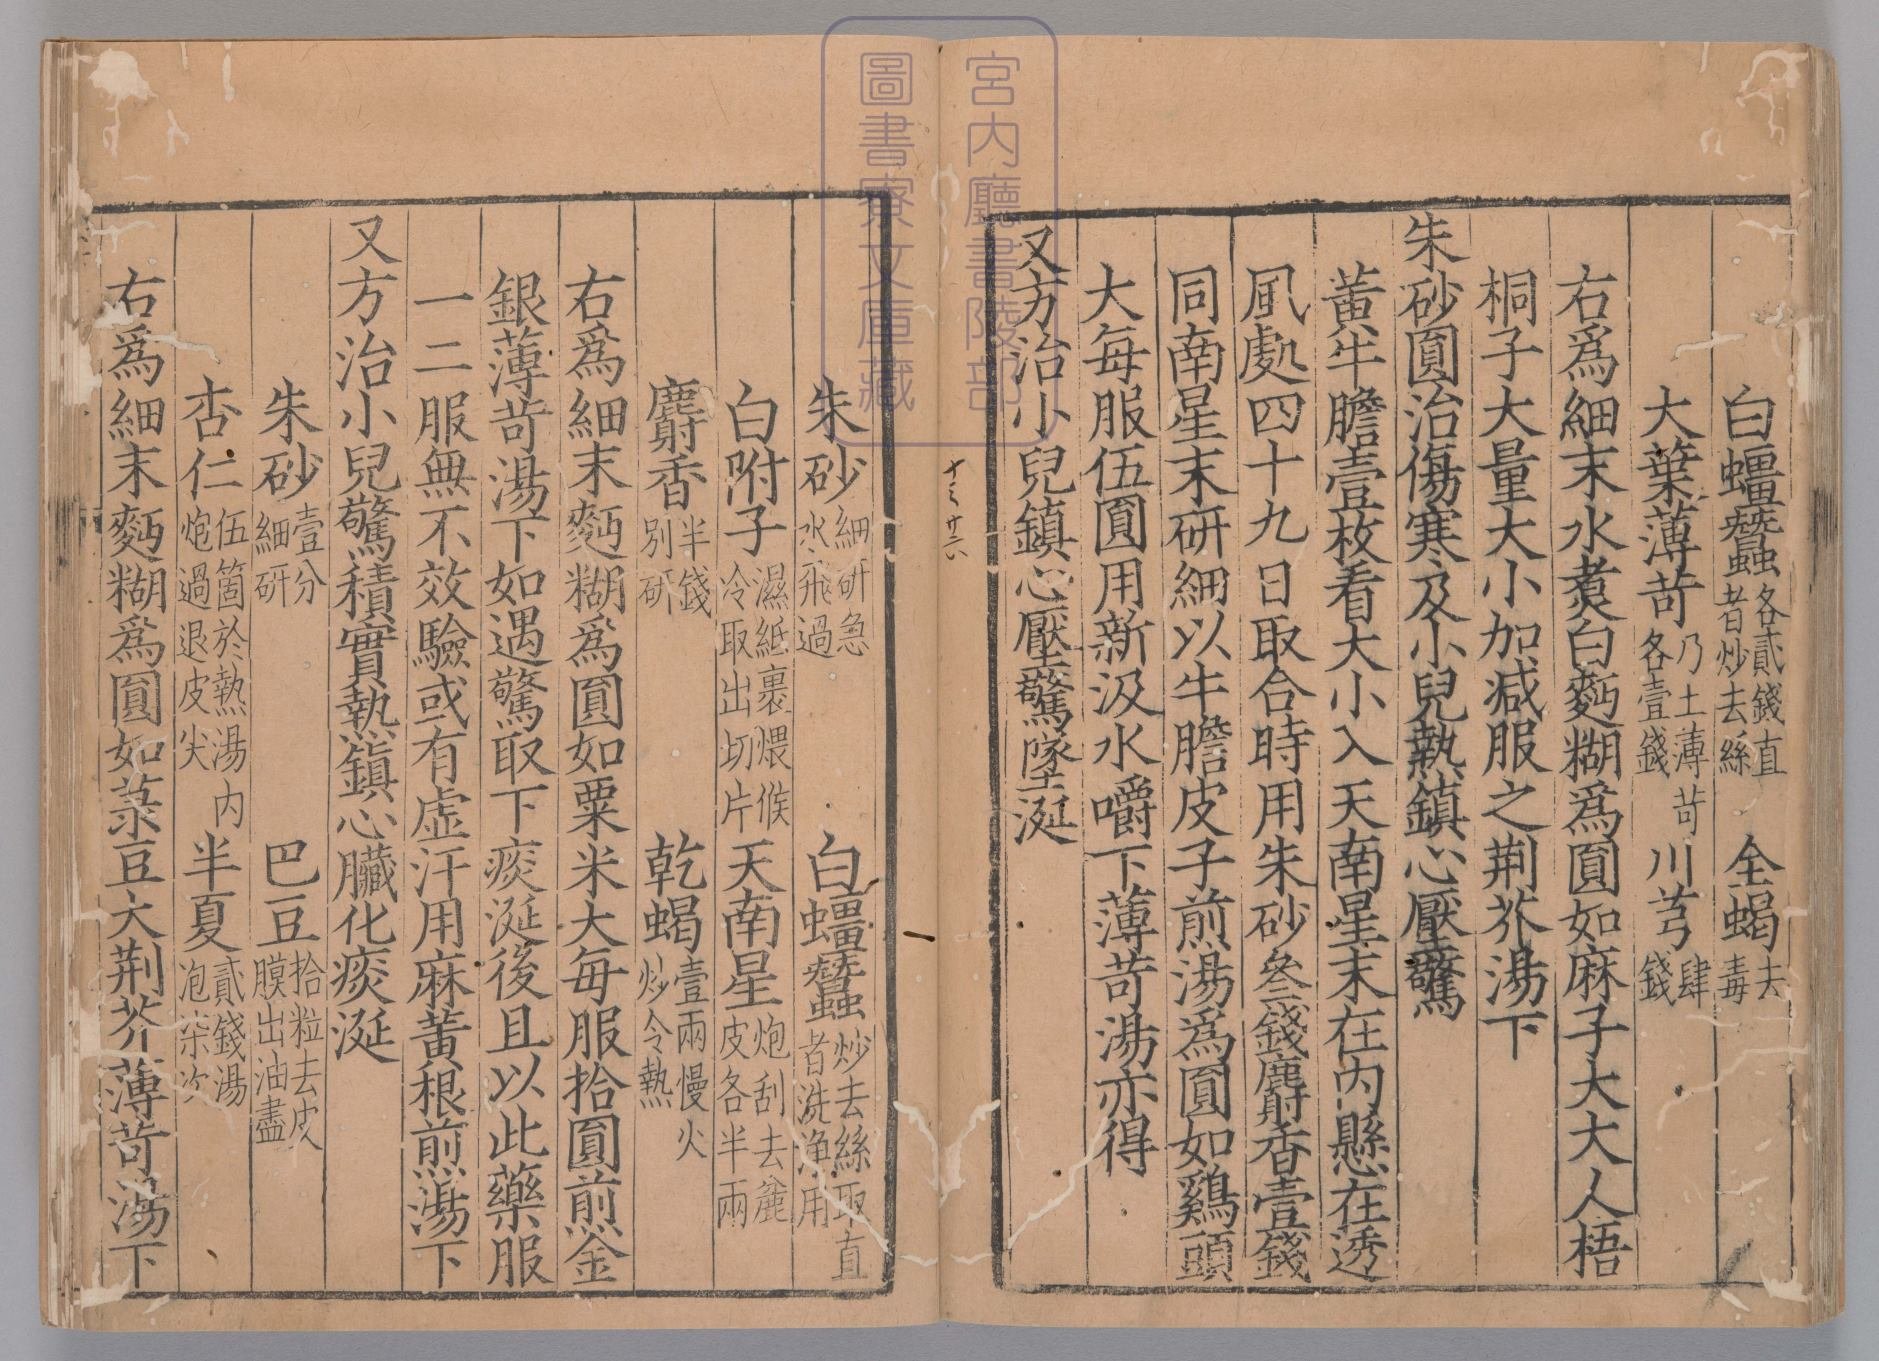 白殭蠶各貳錢直者炒去絲 全蝎去毒
大葉薄苛乃土薄苛各壹錢 川芎肆錢
右爲細末水煑白麪糊爲圓如麻子大大人梧
桐子大量大小加减服之荆芥湯下
朱砂圓治傷寒及小兒熱鎮心壓驚
黄牛膽壹枚看大小入天南星末在内懸在透
風處四十九日取合時用朱砂叄錢麝香壹錢
同南星末研細以牛膽皮子煎湯爲圓如鷄頭
大每服伍圓用新汲水嚼下薄苛湯亦得
又方治小兒鎮心壓驚墜涎
朱砂細研急水飛過 白殭蠶炒去絲取直者洗净用
白附子濕紙裹煨候冷取出切片 天南星炮刮去麄皮各半兩
麝香半錢別研 乾蝎壹兩慢火炒令熱
右爲細末麪糊爲圓如粟米大每服拾圓煎金
銀薄苛湯下如遇驚取下痰涎後且以此藥服
一二服無不效驗或有虚汗用麻黄根煎湯下
又方治小兒驚積實熱鎮心臟化痰涎
朱砂壹分細研 巴豆拾粒去皮膜出油盡
杏仁伍箇於熱湯内炮過退皮尖 半夏貳錢湯泡柒次
右爲細末麪糊爲圓如菉豆大荆芥薄苛湯下
十ミ廿六
宮内廳書陵部
圖書寮文庫藏